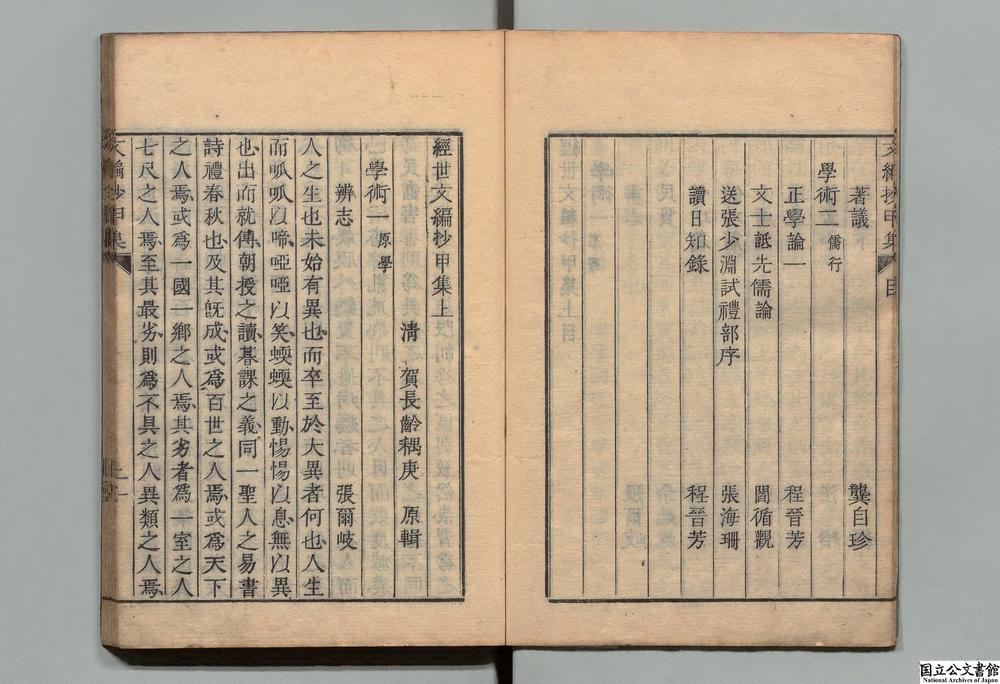 文編抄甲集 目
著議 龔自珍
學術二 儒行
正學論一 程晉芳
文士詆先儒論 閻循觀
送張少淵試禮部序 張海珊
讀日知錄 程晉芳
經世文編抄甲集上
清 賀長齡耦庚 原輯
學術一 原學
辨志 張爾岐
人之生也未始有異也而卒至於大異者何也人生
而呱呱以啼啞啞以笑蝡蝡以動惕惕以息無以異
也出而就傅朝授之讀暮課之義同一聖人之易書
詩禮春秋也及其旣成或爲百世之人焉或爲天下
之人焉或爲一國一鄉之人焉其劣者爲一室之人
七尺之人焉至其最劣則爲不具之人異類之人焉
文編抄甲集
国立公文書館
National Archives of Japan